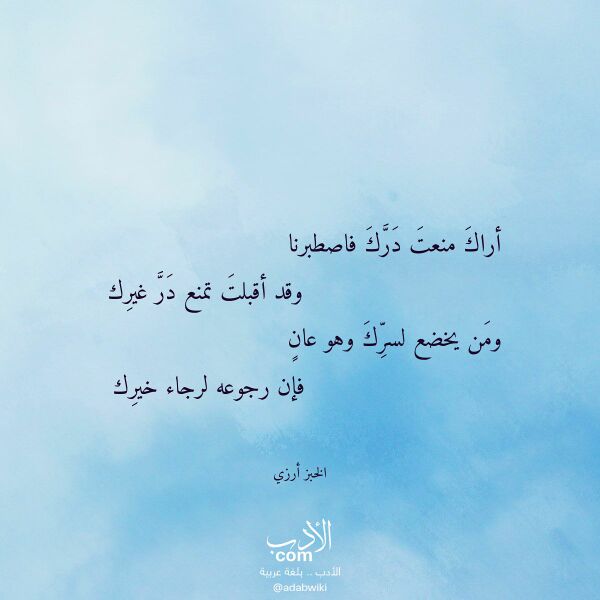 أراكَ منعتَ دَرَّكَ فاصطبرنا
وقد أقبلتَ تمنع دَرَّ غيرِك
ومَن يخضع لسرِّكَ وهو عانٍ
فإن رجوعه لرجاء خيرِك
الخبز أرزي
الأدب
com
الأدب .. بلغة عربية
@adabwiki